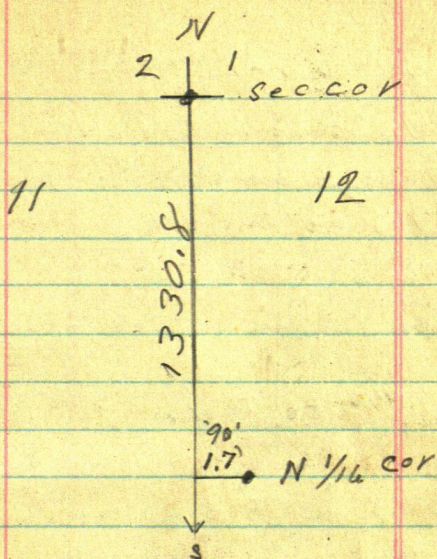 N
2 1
sec cor
11 12
1330.8
90°
1.7
N 1/16 cor
S